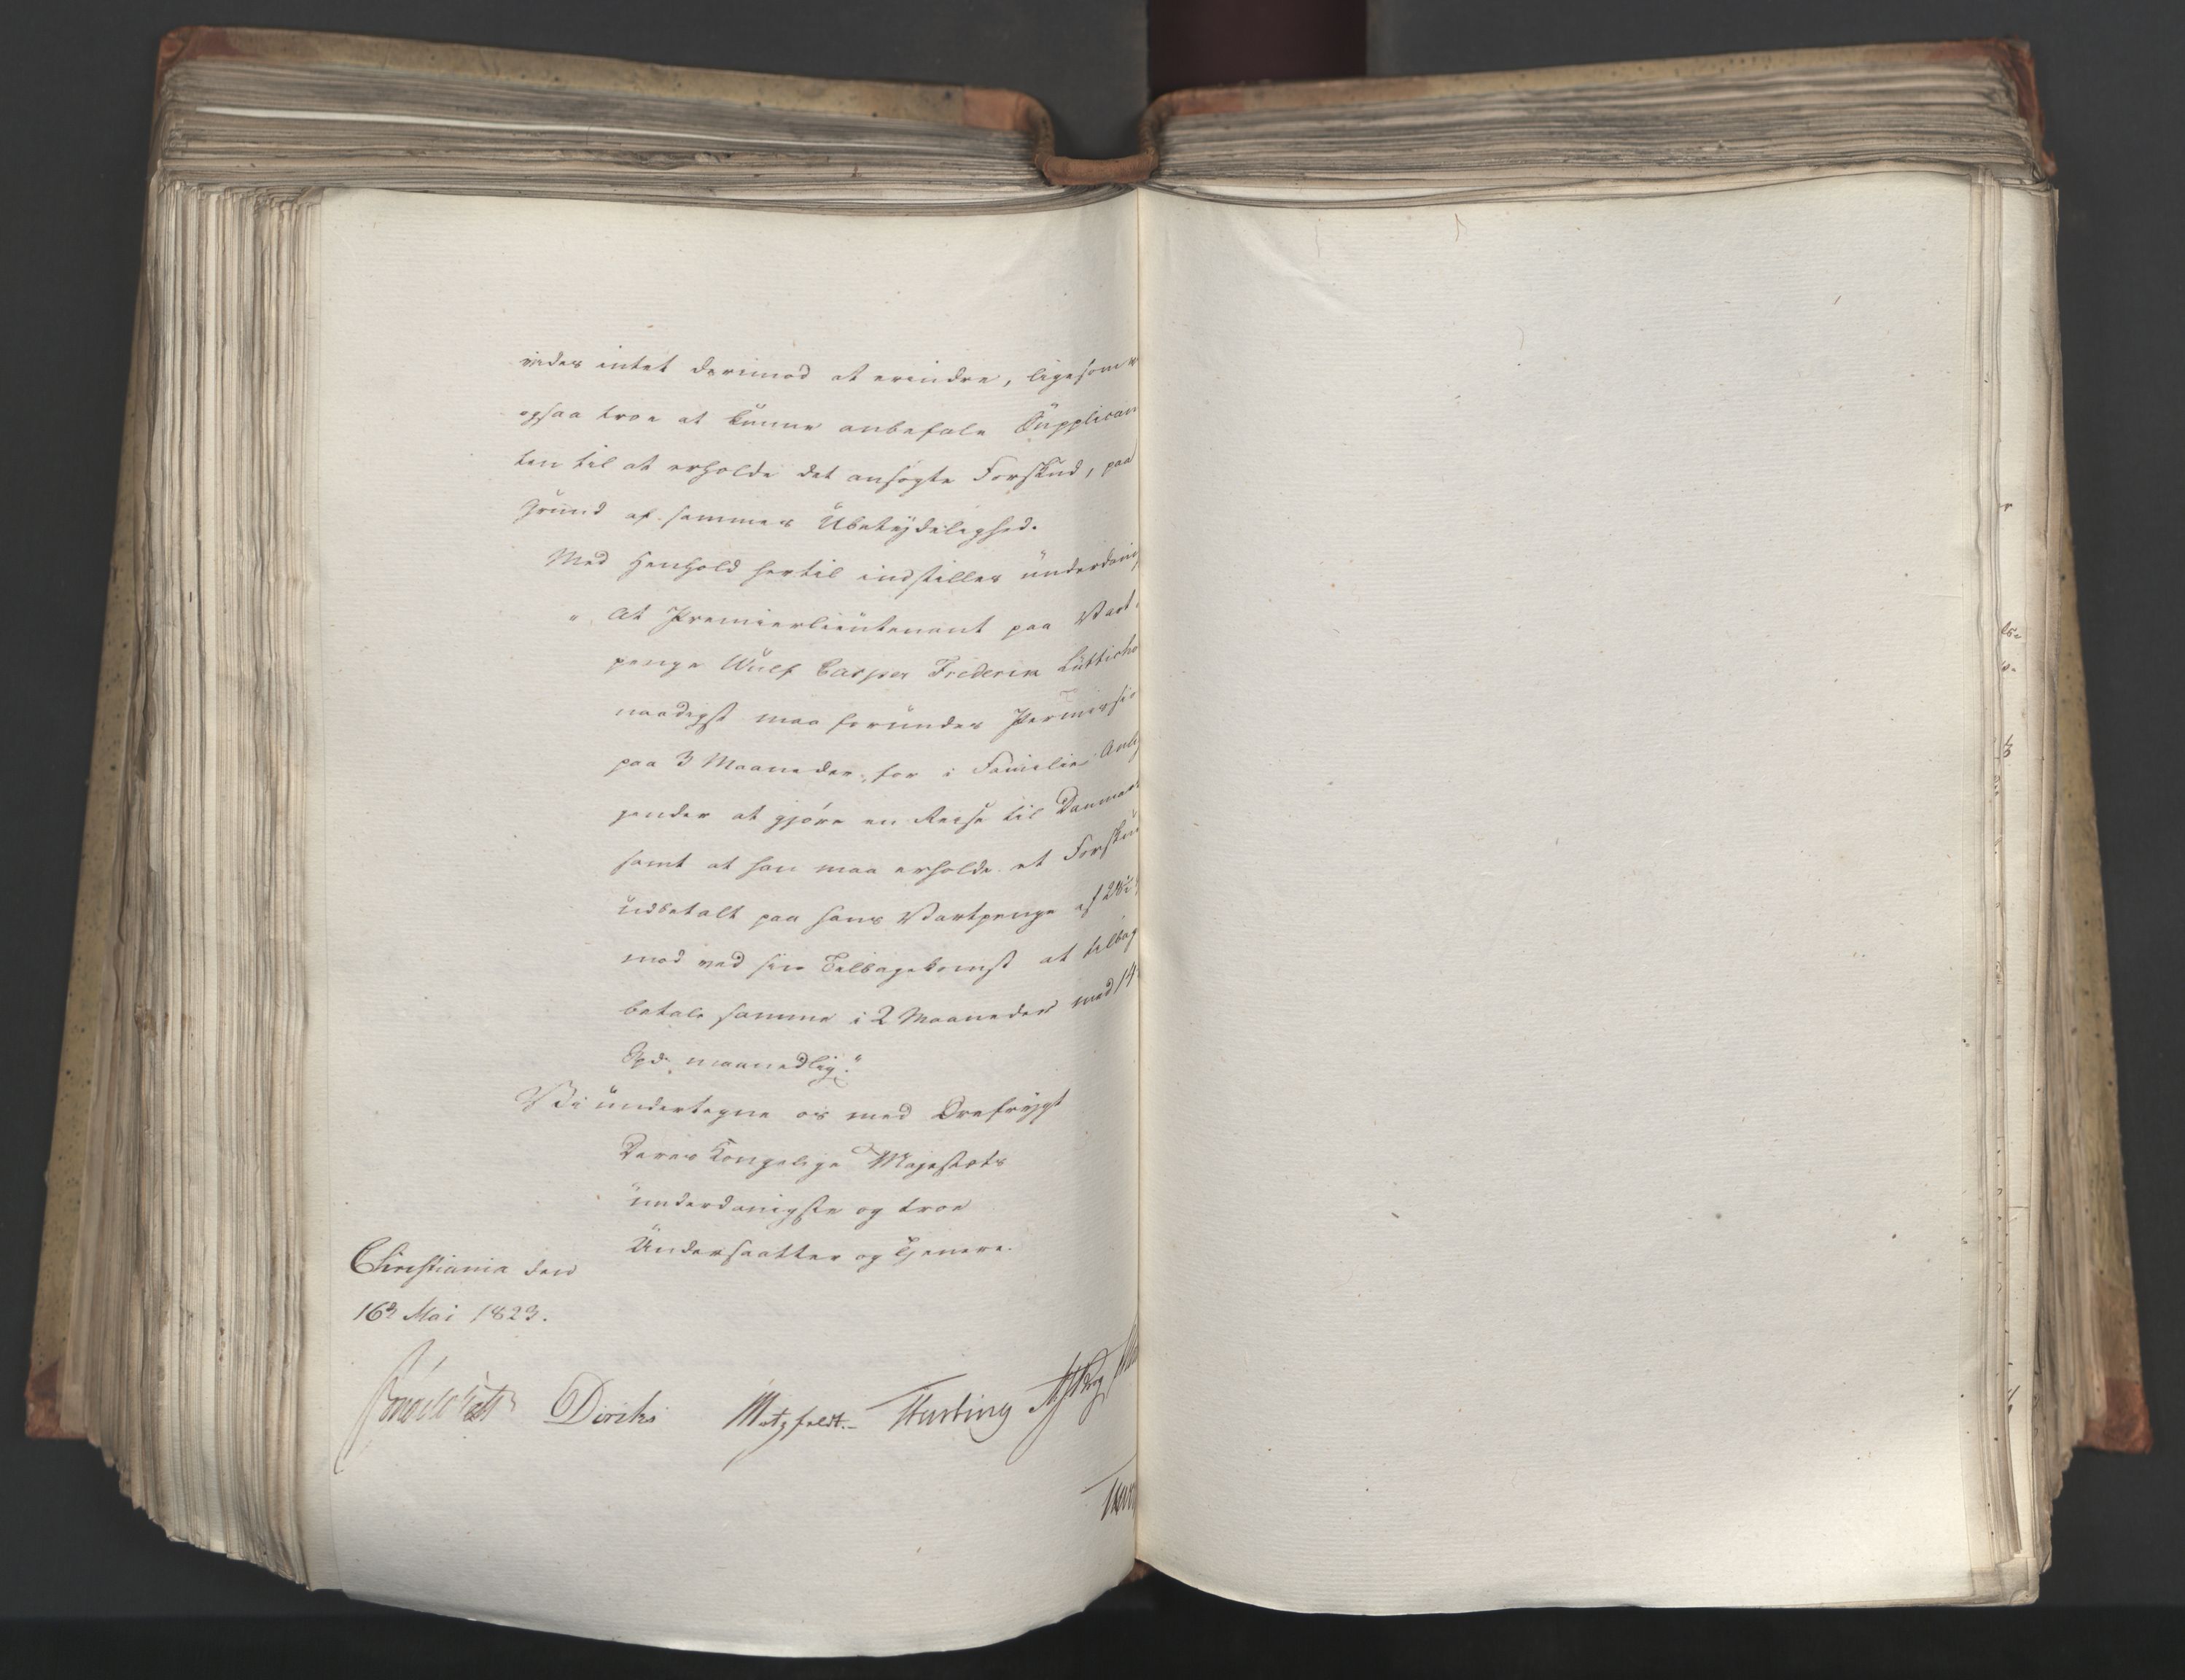 vides intet derimod at erindre, ligesom v
ogsaa troe at kunne anbefale Supplican
ten til at erholde det ansøgte Forskud, paa
Grund af sammes Ubetydelighed.
Med Henhold hertil indstilles underdanig
"At Premierlieutenant paa Vart-
penge Wulf Casper Frederik Lütticho
naadigst maa forundes Permissio
paa 3 Maaneder, for i Familie Anlig
gender at gjøre en Reise til Danmar
samt at han maa erholde et Forskud
udbetalt paa hans Vartpenge af 28
mod ved sin Tilbagekomst at tilbag
betale samme i 2 Maaneder med 14
Spd. maanedlig."
Vi undertegne os med Ærefrygt
Deres Kongelige Majestæts
underdanigste og troe
Undersaatter og Tjenere.
Christiania den
16d Mai 1823.
Diriks Motzfeldt. Fasting